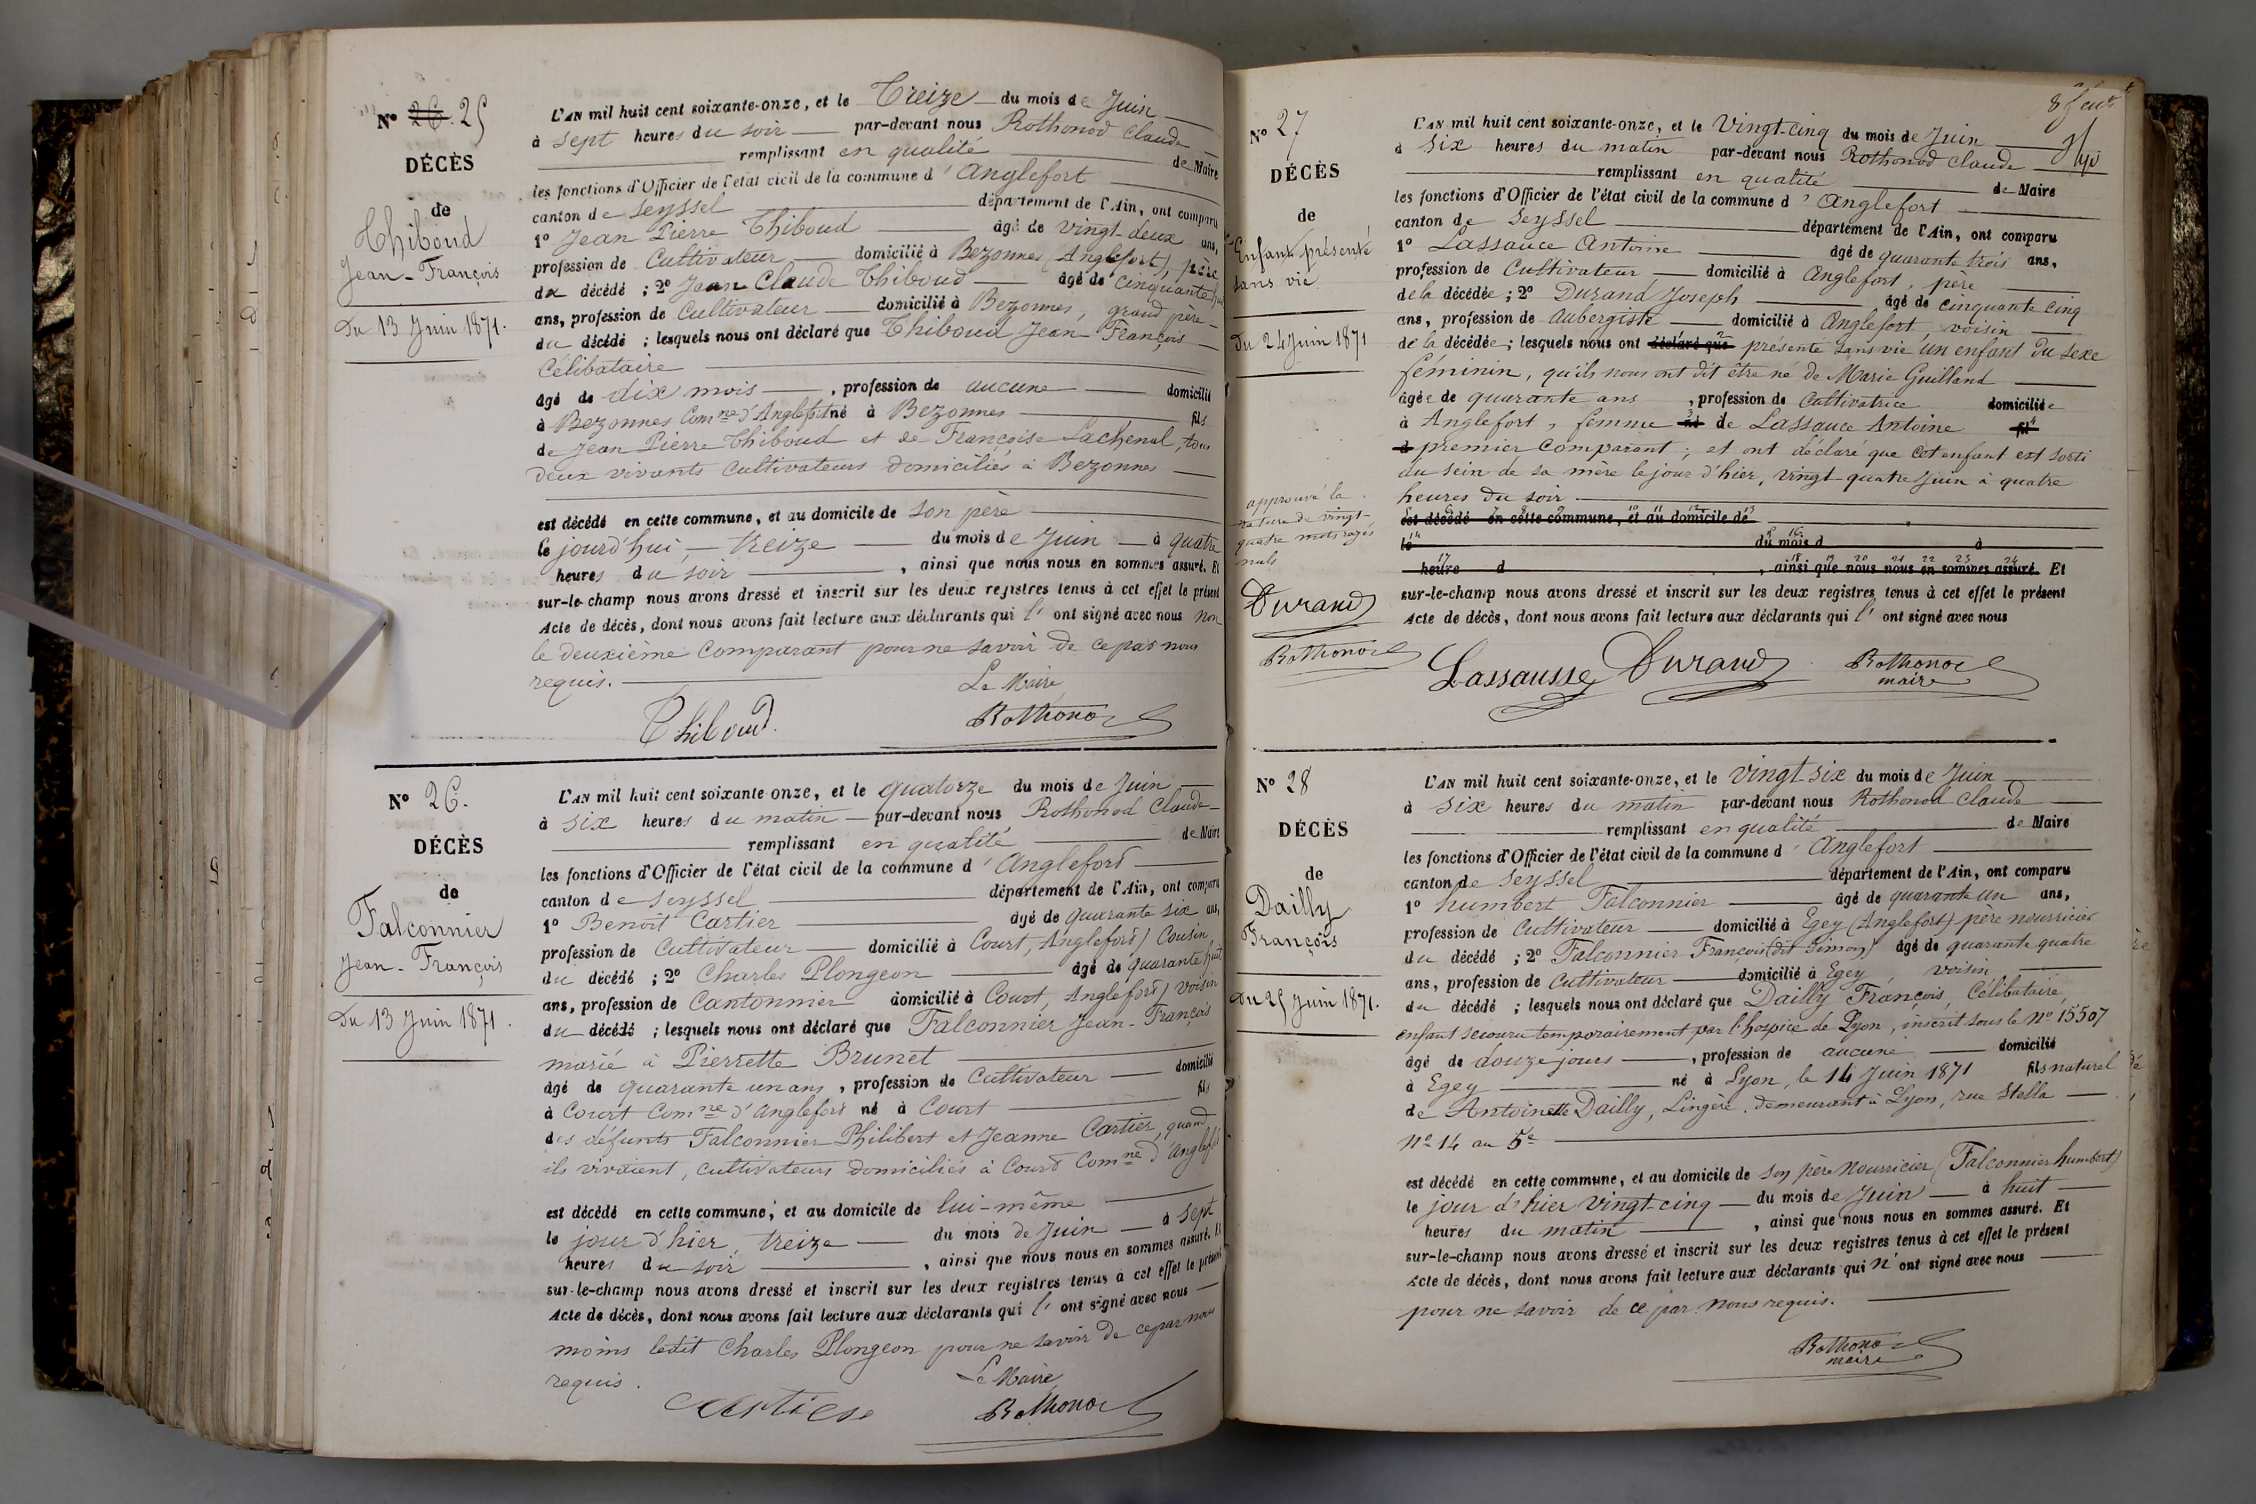 N° 26. 25
DÉCÈS
de
Thiboud
Jean-François
Du 13 Juin 1871.
L'AN mil huit cent soixante-onze, et le Treize du mois de Juin
à sept heures du soir par-devant nous Rothonod Claude
remplissant en qualité de Maire
les fonctions d'Officier de l'état civil de la commune d'Anglefort
canton de Seyssel département de l'Ain, ont comparu
1° Jean Pierre Thiboud âgé de vingt deux ans,
profession de Cultivateur domicilié à Bezonnes (Anglefort), père
du décédé ; 2° Jean Claude Thiboud âgé de cinquante
ans, profession de Cultivateur domicilié à Bezonnes, grand père
du décédé ; lesquels nous ont déclaré que Thiboud Jean François
Célibataire
âgé de dix mois, profession de aucune domicilié
à Bezonnes Comne d'Anglefort né à Bezonnes fils
de Jean Pierre Thiboud et de Françoise Lachenal, tous
deux vivants cultivateurs domiciliés à Bezonnes
est décédé en cette commune, et au domicile de son père
le jourd'hui, treize du mois de Juin à quatre
heures du soir, ainsi que nous nous en sommes assuré. Et
sur-le-champ nous avons dressé et inscrit sur les deux registres tenus à cet effet le présent
Acte de décès, dont nous avons fait lecture aux déclarants qui l'ont signé avec nous non
le deuxième comparant pour ne savoir de ce par nous
requis.
Le Maire
Thiboud. Rothonod
N° 26.
DÉCÈS
de
Falconnier
Jean-François
Du 13 Juin 1871.
L'AN mil huit cent soixante-onze, et le quatorze du mois de Juin
à six heures du matin par-devant nous Rothonod Claude
remplissant en qualité de Maire
les fonctions d'Officier de l'état civil de la commune d'Anglefort
canton de Seyssel département de l'Ain, ont comparu
1° Benoît Cartier âgé de quarante six ans,
profession de Cultivateur domicilié à Court, Anglefort) Cousin
du décédé ; 2° Charles Plongeon âgé de quarante huit
ans, profession de Cantonnier domicilié à Court, Anglefort) voisin
du décédé ; lesquels nous ont déclaré que Falconnier Jean-François
marié à Pierrette Brunet
âgé de quarante un ans, profession de Cultivateur domicilié
à Court Comne d'Anglefort né à Court fils
des défunts Falconnier Philibert et Jeanne Cartier, quand
ils vivaient, cultivateurs domiciliés à Court Comne d'Anglefort
est décédé en cette commune, et au domicile de lui-même
le jour d'hier, treize du mois de Juin à sept
heures du soir, ainsi que nous nous en sommes assuré. Et
sur-le-champ nous avons dressé et inscrit sur les deux registres tenus à cet effet le présent
Acte de décès, dont nous avons fait lecture aux déclarants qui l'ont signé avec nous
moins ledit Charles Plongeon pour ne savoir de ce par nous
requis.
Le Maire
Cartier Rothonod
N° 27
DÉCÈS
de
Enfant présenté
sans vie
Du 24 Juin 1871
L'AN mil huit cent soixante-onze, et le Vingt-cinq du mois de Juin
à six heures du matin par-devant nous Rothonod Claude
remplissant en qualité de Maire
les fonctions d'Officier de l'état civil de la commune d'Anglefort
canton de Seyssel département de l'Ain, ont comparu
1° Lassauce Antoine âgé de quarante trois ans,
profession de Cultivateur domicilié à Anglefort, père
de la décédée ; 2° Durand Joseph âgé de cinquante cinq
ans, profession de aubergiste domicilié à Anglefort, voisin
de la décédée ; lesquels nous ont déclaré que présenté sans vie un enfant du sexe
féminin, qu'ils nous ont dit être né de Marie Guilland
âgée de quarante ans, profession de Cultivatrice domiciliée
à Anglefort, femme né de Lassauce Antoine fil
d premier comparant ; et ont déclaré que cet enfant est sorti
du sein de sa mère le jour d'hier, vingt quatre Juin à quatre
heures du soir
est décédé en cette commune, et au domicile de
le du mois d à
heure d, ainsi que nous nous en sommes assuré. Et
sur-le-champ nous avons dressé et inscrit sur les deux registres tenus à cet effet le présent
Acte de décès, dont nous avons fait lecture aux déclarants qui l'ont signé avec nous
approuvé la
rature de vingt
quatre mots rayés
nuls
Durand
Rothonod
Lassausse Durand Rothonod
maire
N° 28
DÉCÈS
de
Dailly
François
Du 25 Juin 1871.
L'AN mil huit cent soixante-onze, et le Vingt-six du mois de Juin
à six heures du matin par-devant nous Rothonod Claude
remplissant en qualité de Maire
les fonctions d'Officier de l'état civil de la commune d'Anglefort
canton de Seyssel département de l'Ain, ont comparu
1° humbert Falconnier âgé de quarante un ans,
profession de Cultivateur domicilié à Egey (Anglefort) père nourricier
du décédé ; 2° Falconnier François (dit Simon) âgé de quarante quatre
ans, profession de Cultivateur domicilié à Egey, voisin
du décédé ; lesquels nous ont déclaré que Dailly François, Célibataire,
enfant secouru temporairement par l'hospice de Lyon, inscrit sous le N° 15507
âgé de douze jours, profession de aucune domicilié
à Egey né à Lyon, le 14 Juin 1871 fils naturel
de Antoinette Dailly, Lingère, demeurant à Lyon, rue Stella
N° 14 au 5e
est décédé en cette commune, et au domicile de son père nourricier (Falconnier humbert)
le jour d'hier vingt-cinq du mois de Juin à huit
heures du matin, ainsi que nous nous en sommes assuré. Et
sur-le-champ nous avons dressé et inscrit sur les deux registres tenus à cet effet le présent
Acte de décès, dont nous avons fait lecture aux déclarants qui n'ont signé avec nous
pour ne savoir de ce par nous requis.
Rothonod
maire